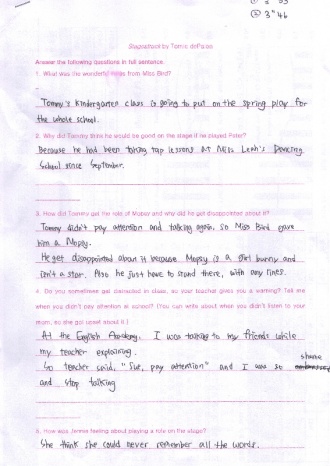 ② 3" 46
Stagestruck by Tomie dePaola
Answer the following questions in full sentence.
1. What was the wonderful news from Miss Bird?
Tommy's kindergarten class is going to put on the spring play for
the whole school.
2. Why did Tommy think he would be good on the stage if he played Peter?
Because he had been taking tap lessons at Miss Leah's Dancing
School since September.
3. How did Tommy get the role of Mopsy and why did he get disappointed about it?
Tommy didn't pay attention and talking again, so Miss Bird gave
him a Mopsy.
He get disappointed about it because Mopsy is a girl bunny and
isn't a star. Also he just have to stand there, with any lines.
4. Do you sometimes get distracted in class, so your teacher gives you a warning? Tell me
when you didn't pay attention at school? (You can write about when you didn't listen to your
mum, so she got upset about it.)
At the English Academy, I was talking to my friends while
my teacher explaining.
So teacher said, "Sue, pay attention" and I was so shame
and stop talking
5. How was Jannie feeling about playing a role on the stage?
She think she could never remember all the words.